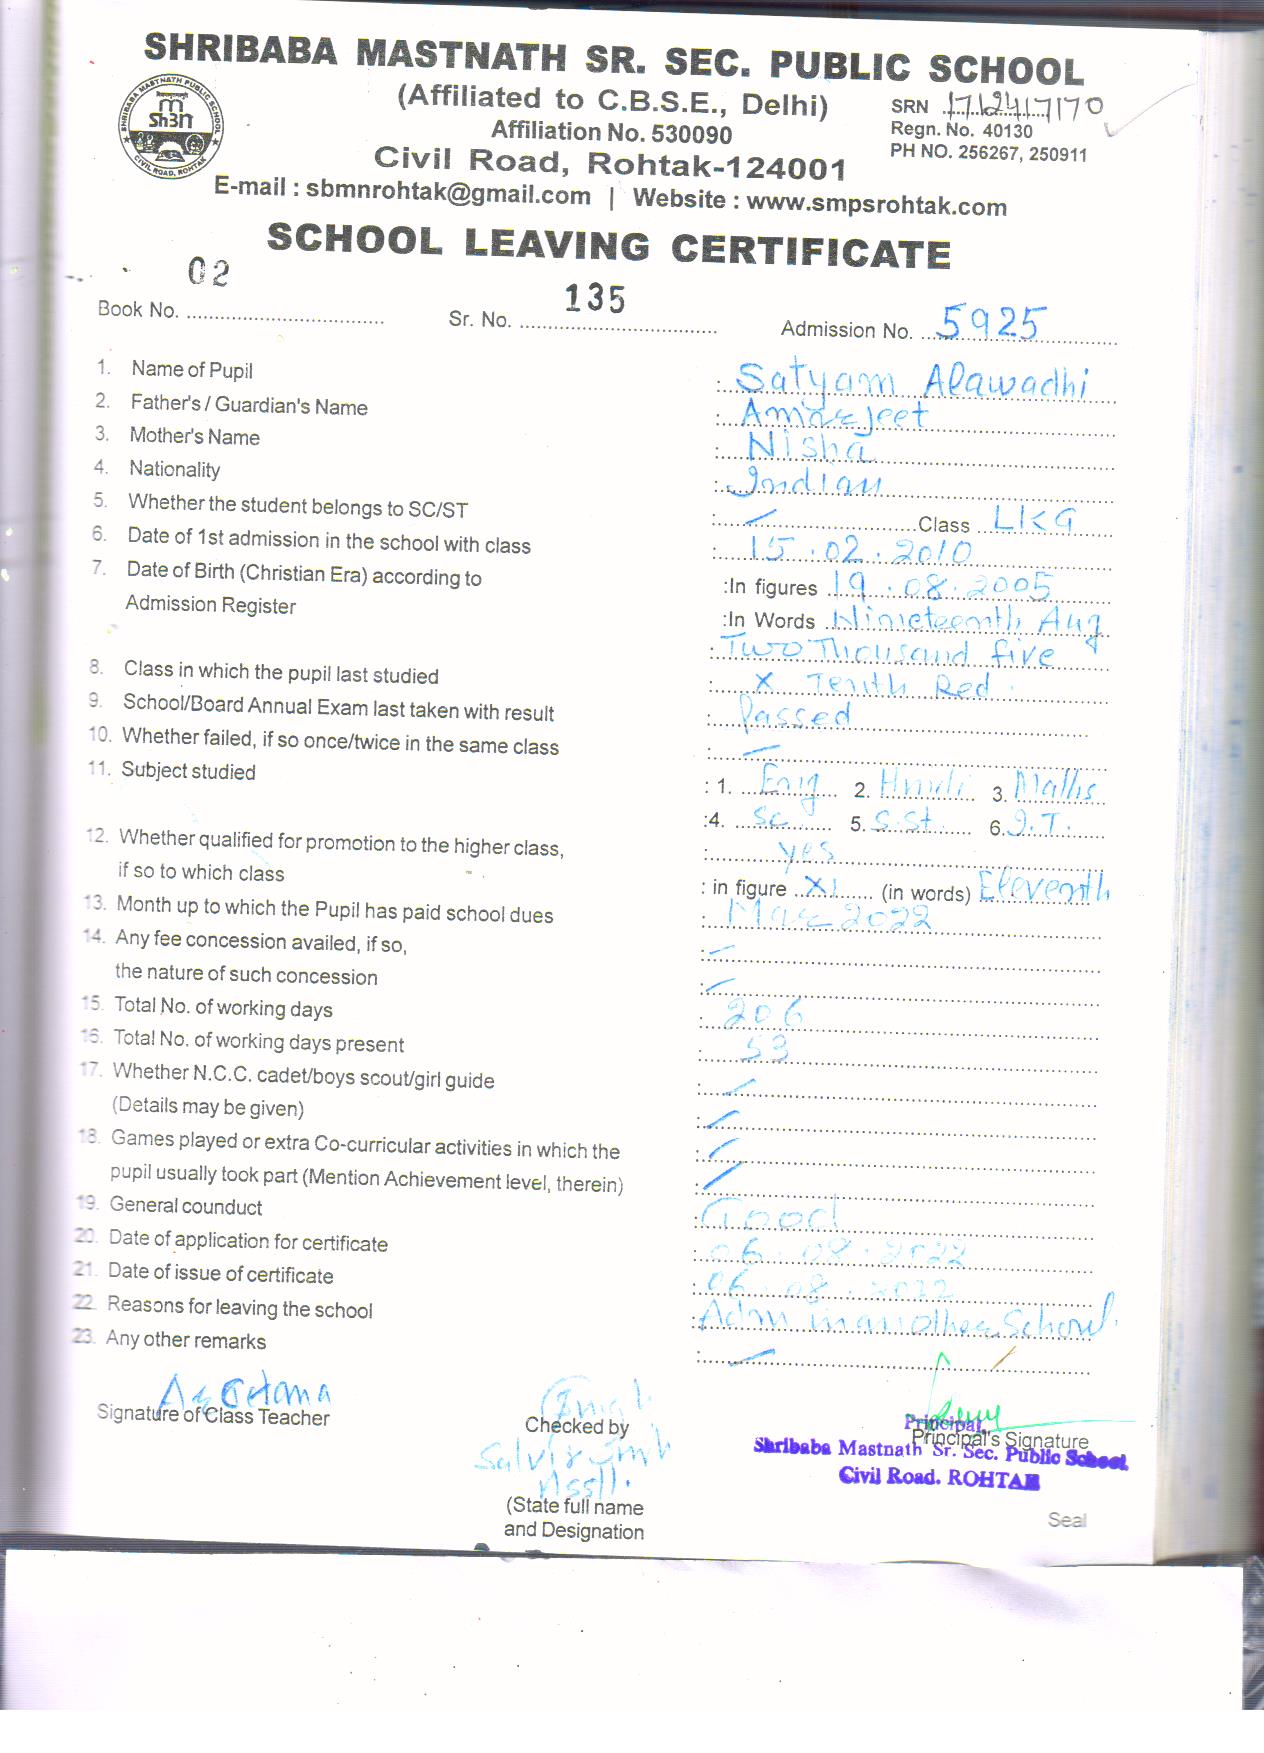 SHRIBABA MASTNATH SR. SEC. PUBLIC SCHOOL
(Affiliated to C.B.S.E., Delhi)
SRN 1712417170
Affiliation No. 530090
Regn. No. 40130
Civil Road, Rohtak-124001
PH NO. 256267, 250911
E-mail : sbmnrohtak@gmail.com | Website : www.smpsrohtak.com
SCHOOL LEAVING CERTIFICATE
Book No. 02 Sr. No. 135 Admission No. 5925
1. Name of Pupil : Satyam Alawadhi
2. Father's / Guardian's Name : Amarjeet
3. Mother's Name : Nisha
4. Nationality : Indian
5. Whether the student belongs to SC/ST : – Class LKG
6. Date of 1st admission in the school with class : 15.02.2010
7. Date of Birth (Christian Era) according to :In figures 19.08.2005
Admission Register :In Words Nineteenth Aug
: Two Thousand five
8. Class in which the pupil last studied : X Tenth Red.
9. School/Board Annual Exam last taken with result : Passed
10. Whether failed, if so once/twice in the same class : –
11. Subject studied : 1. Eng 2. Hindi 3. Maths
:4. Sc. 5. S.St. 6. I.T.
12. Whether qualified for promotion to the higher class, : yes
if so to which class : in figure XI (in words) Eleventh
13. Month up to which the Pupil has paid school dues : Mar 2022
14. Any fee concession availed, if so, : –
the nature of such concession : –
15. Total No. of working days : 206
16. Total No. of working days present : 53
17. Whether N.C.C. cadet/boys scout/girl guide : –
(Details may be given) : –
18. Games played or extra Co-curricular activities in which the : –
pupil usually took part (Mention Achievement level, therein) : –
19. General counduct : Good
20. Date of application for certificate : 06.08.2022
21. Date of issue of certificate : 06.08.2022
22. Reasons for leaving the school : Adm in another School.
23. Any other remarks : –
Signature of Class Teacher
Checked by
Principal
Principal's Signature
Shribaba Mastnath Sr. Sec. Public School
Civil Road. ROHTAK
(State full name
and Designation
Seal